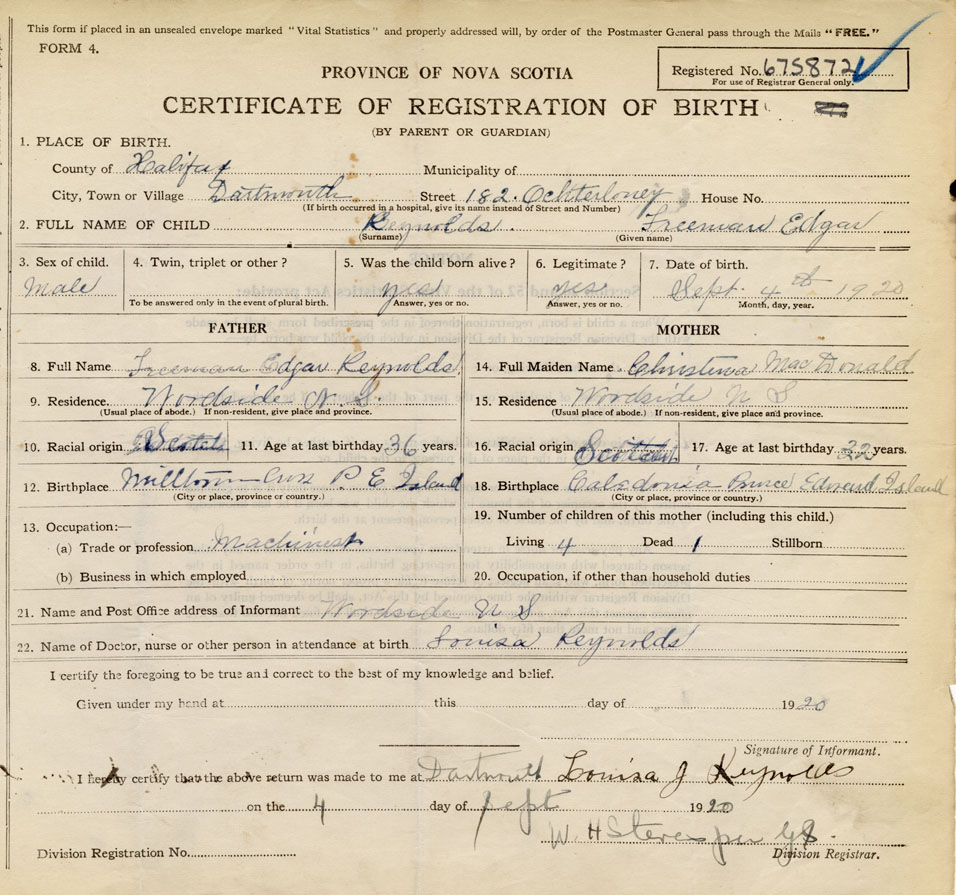 This form if placed in an unsealed envelope marked "Vital Statistics" and properly addressed will, by order of the Postmaster General pass through the Mails "FREE."
FORM 4.
Registered No. 675872
For use of Registrar General only.
PROVINCE OF NOVA SCOTIA
CERTIFICATE OF REGISTRATION OF BIRTH
(BY PARENT OR GUARDIAN)
1. PLACE OF BIRTH.
County of Halifax Municipality of
City, Town or Village Dartmouth Street 182 Ochterloney House No.
(If birth occurred in a hospital, give its name instead of Street and Number)
2. FULL NAME OF CHILD Reynolds. Freeman Edgar
(Surname) (Given name)
3. Sex of child. 4. Twin, triplet or other? 5. Was the child born alive? 6. Legitimate? 7. Date of birth.
Male yes yes Sept. 4th 1920
To be answered only in the event of plural birth. Answer, yes or no. Answer, yes or no. Month, day, year.
FATHER MOTHER
8. Full Name Freeman Edgar Reynolds 14. Full Maiden Name Christena MacDonald
9. Residence. Woodside N. S. 15. Residence Woodside N S
(Usual place of abode.) If non-resident, give place and province. (Usual place of abode.) If non-resident, give place and province.
10. Racial origin Scotch 11. Age at last birthday 36 years. 16. Racial origin 17. Age at last birthday 32 years.
12. Birthplace Milltown Cross P E Island 18. Birthplace Caledonia Prince Edward Island
(City or place, province or country.) (City or place, province or country.)
13. Occupation:— 19. Number of children of this mother (including this child.)
(a) Trade or profession Machinest Living 4 Dead 1 Stillborn
(b) Business in which employed 20. Occupation, if other than household duties
21. Name and Post Office address of Informant Woodside N S
22. Name of Doctor, nurse or other person in attendance at birth Louisa Reynolds
I certify the foregoing to be true and correct to the best of my knowledge and belief.
Given under my hand at this day of 1920
Signature of Informant.
I hereby certify that the above return was made to me at Dartmouth Louisa J Reynolds
on the 4 day of Sept 1920
W. H Stevens per
Division Registration No. Division Registrar.